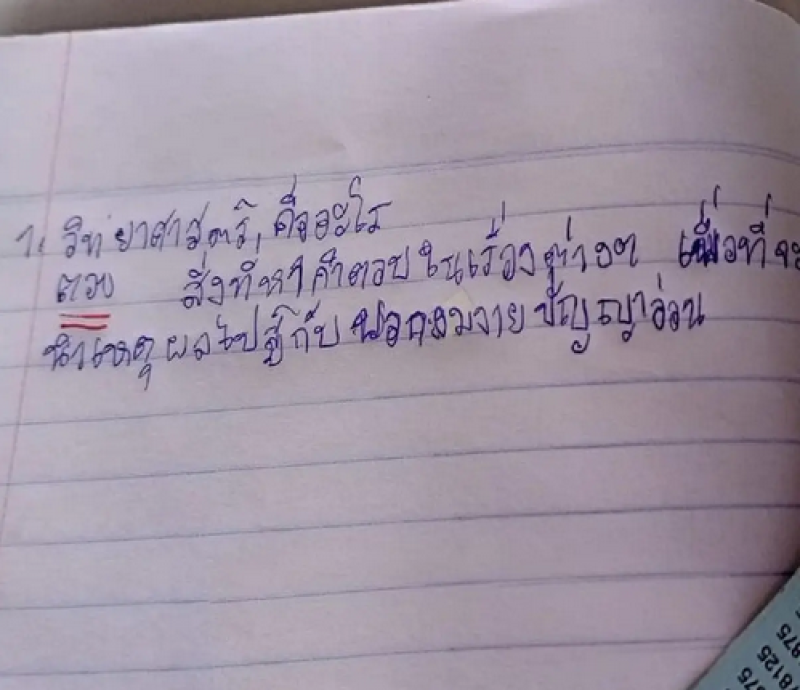 1. วิทยาศาสตร์, คืออะไร
ตอบ สิ่งที่หาคำตอบในเรื่องต่างๆ เพื่อที่จะ
นำเหตุผลไปสู้กับพวกงมงายปัญญาอ่อน
78125
875